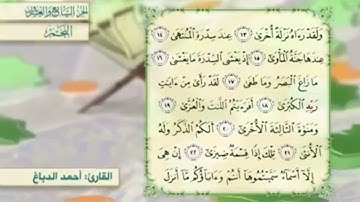 الجزء السابع والعشرون
النجم
وَلَقَدْ رَءَاهُ نَزْلَةً أُخْرَىٰ ١٣ عِندَ سِدْرَةِ الْمُنتَهَىٰ ١٤
عِندَهَا جَنَّةُ الْمَأْوَىٰ ١٥ إِذْ يَغْشَى السِّدْرَةَ مَا يَغْشَىٰ ١٦
مَا زَاغَ الْبَصَرُ وَمَا طَغَىٰ ١٧ لَقَدْ رَأَىٰ مِنْ ءَايَٰتِ
رَبِّهِ الْكُبْرَىٰ ١٨ أَفَرَءَيْتُمُ اللَّٰتَ وَالْعُزَّىٰ ١٩
وَمَنَوٰةَ الثَّالِثَةَ الْأُخْرَىٰ ٢٠ أَلَكُمُ الذَّكَرُ وَلَهُ
الْأُنثَىٰ ٢١ تِلْكَ إِذًا قِسْمَةٌ ضِيزَىٰ ٢٢ إِنْ هِيَ
إِلَّا أَسْمَاءٌ سَمَّيْتُمُوهَا أَنتُمْ وَءَابَاؤُكُم مَّا أَنزَلَ
القارئ: أحمد الدباغ